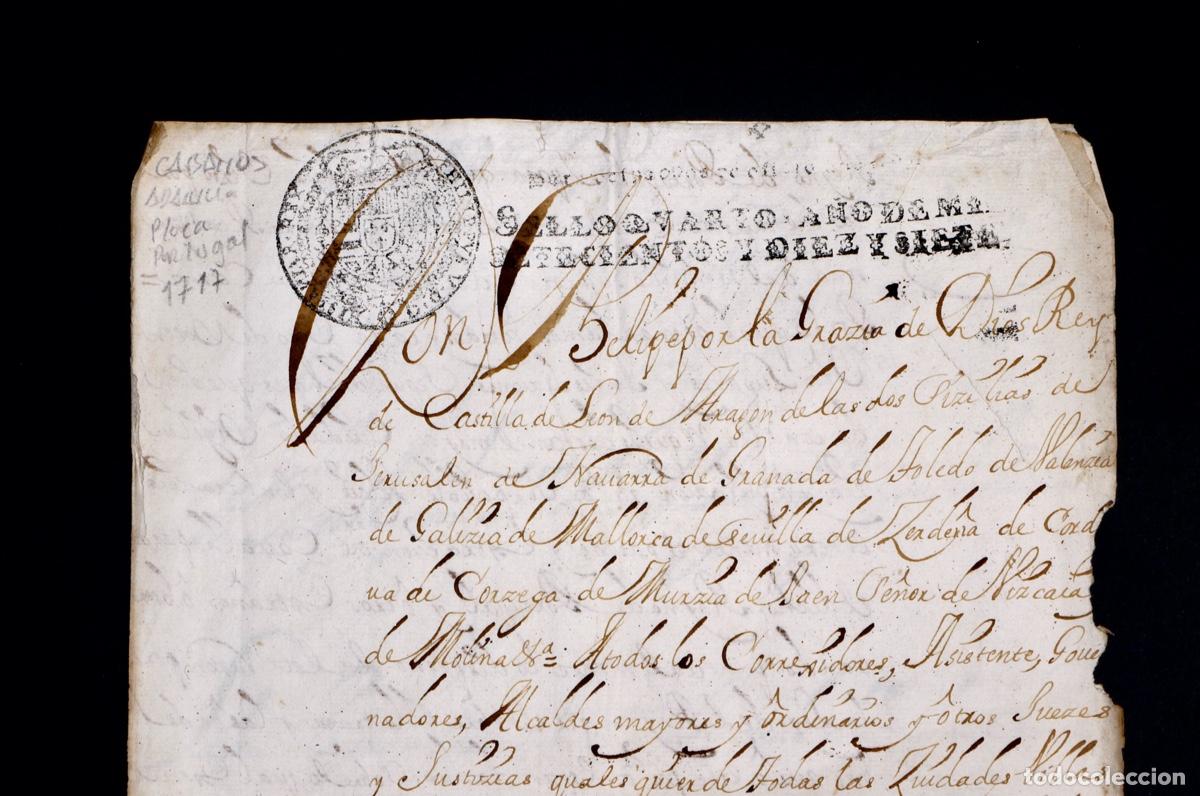 CABALLOS
Plaça
Portugal
= 1717
SELLO QVARTO, AÑO DE MIL
SETECIENTOS Y DIEZ Y SIETE.
Don Phelipe por la Grazia de Dios Rey
de Castilla, de Leon de Aragon de las dos Sizilias de
Jerusalen de Nauarra de Granada de Toledo de Valenzia
de Galizia de Mallorca de seuilla de Zerdeña de Cordo
ua de Corzega de Murzia de Jaen Señor de Vizcaia
de Molina &a Atodos los Correxidores, Asistente, Gouer
nadores, Alcaldes mayores y ordinarios y otros Juezes
y Justizias quales quier de Todas las Ziudades Villas
todocoleccion